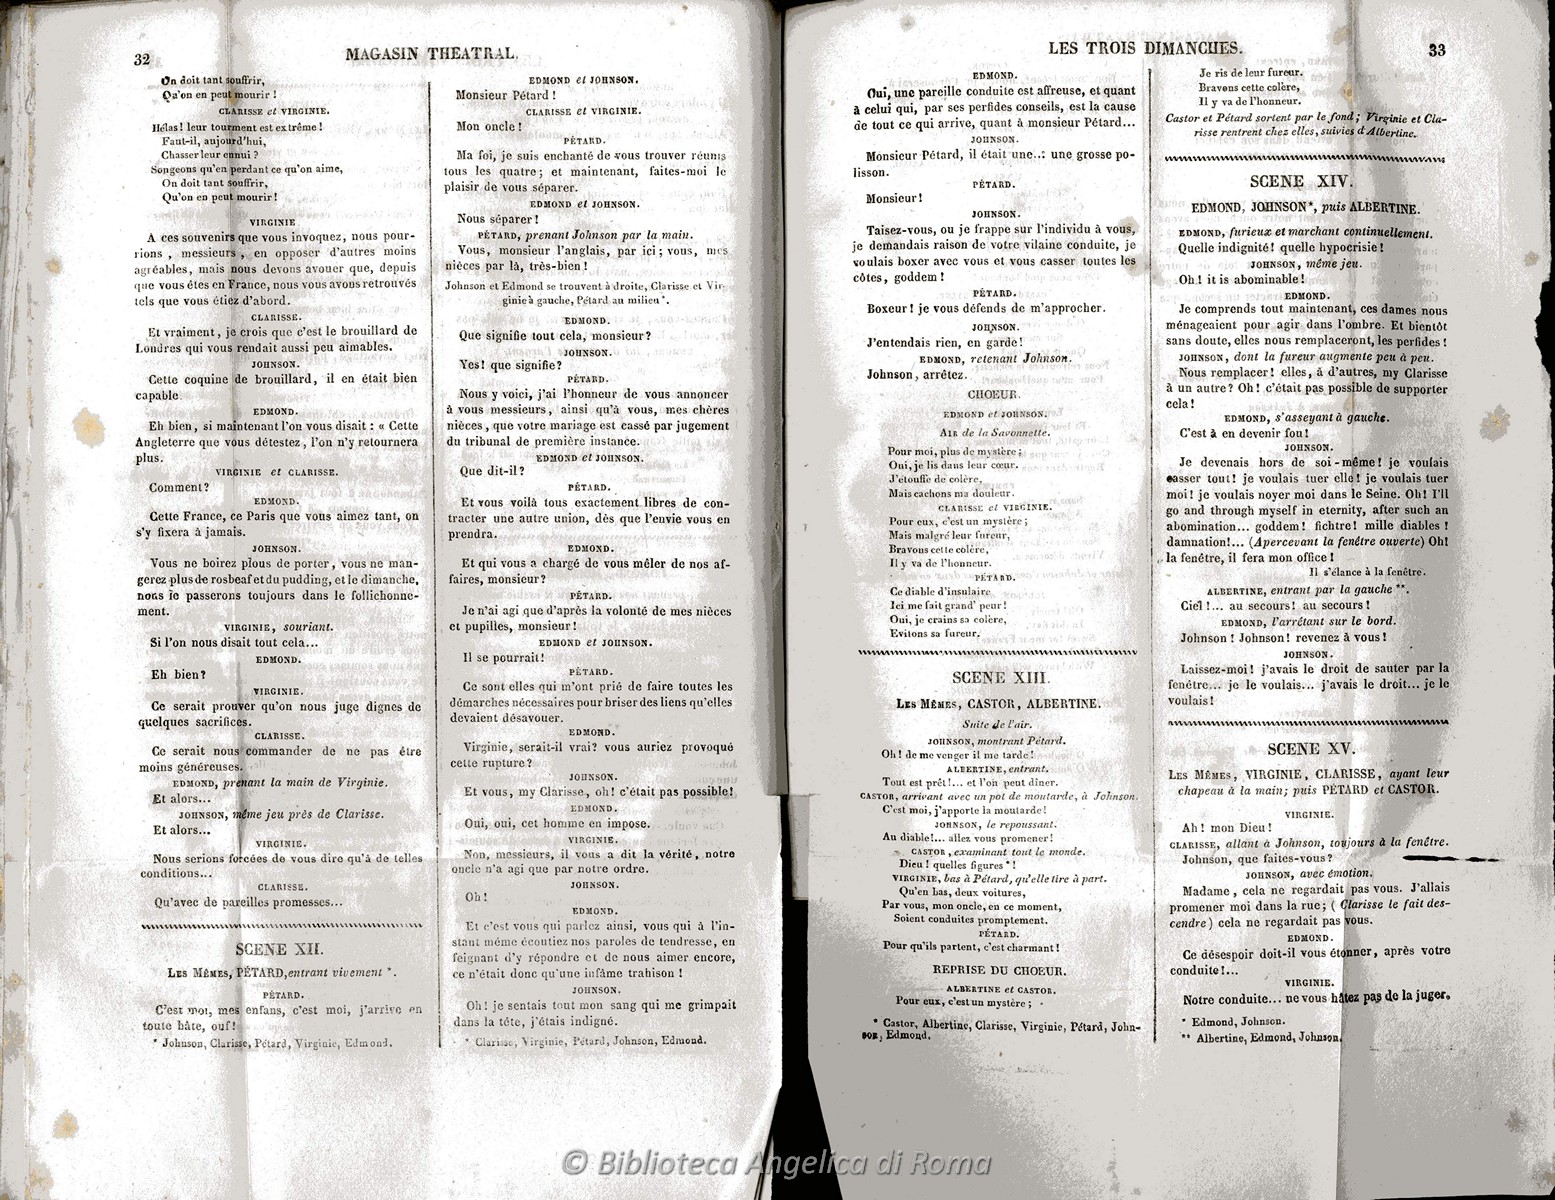 32
MAGASIN THEATRAL.
On doit tant souffrir,
Qu'on en peut mourir !
CLARISSE et VIRGINIE.
Hélas! leur tourment est extrême !
Faut-il, aujourd'hui,
Chasser leur ennui ?
Songeons qu'en perdant ce qu'on aime,
On doit tant souffrir,
Qu'on en peut mourir !
VIRGINIE
A ces souvenirs que vous invoquez, nous pour-
rions , messieurs , en opposer d'autres moins
agréables, mais nous devons avouer que, depuis
que vous êtes en France, nous vous avons retrouvés
tels que vous étiez d'abord.
CLARISSE.
Et vraiment, je crois que c'est le brouillard de
Londres qui vous rendait aussi peu aimables.
JOHNSON.
Cette coquine de brouillard, il en était bien
capable
EDMOND.
Eh bien, si maintenant l'on vous disait : « Cette
Angleterre que vous détestez, l'on n'y retournera
plus.
VIRGINIE et CLARISSE.
Comment?
EDMOND.
Cette France, ce Paris que vous aimez tant, on
s'y fixera à jamais.
JOHNSON.
Vous ne boirez plous de porter, vous ne man-
gerez plus de rosbeaf et du pudding, et le dimanche,
nous le passerons toujours dans le follichonne-
ment.
VIRGINIE, souriant.
Si l'on nous disait tout cela...
EDMOND.
Eh bien?
VIRGINIE.
Ce serait prouver qu'on nous juge dignes de
quelques sacrifices.
CLARISSE.
Ce serait nous commander de ne pas être
moins généreuses.
EDMOND, prenant la main de Virginie.
Et alors...
JOHNSON, même jeu près de Clarisse.
Et alors...
VIRGINIE.
Nous serions forcées de vous dire qu'à de telles
conditions...
CLARISSE.
Qu'avec de pareilles promesses...
SCENE XII.
LES MÊMES, PÉTARD, entrant vivement *.
PÉTARD.
C'est moi, mes enfans, c'est moi, j'arrive en
toute hâte, ouf!
* Johnson, Clarisse, Pétard, Virginie, Edmond.
EDMOND et JOHNSON.
Monsieur Pétard !
CLARISSE et VIRGINIE.
Mon oncle !
PÉTARD.
Ma foi, je suis enchanté de vous trouver réunis
tous les quatre; et maintenant, faites-moi le
plaisir de vous séparer.
EDMOND et JOHNSON.
Nous séparer!
PÉTARD, prenant Johnson par la main.
Vous, monsieur l'anglais, par ici; vous, mes
nièces par là, très-bien !
Johnson et Edmond se trouvent à droite, Clarisse et Vir-
ginie à gauche, Pétard au milieu *.
EDMOND.
Que signifie tout cela, monsieur?
JOHNSON.
Yes! que signifie?
PÉTARD.
Nous y voici, j'ai l'honneur de vous annoncer
à vous messieurs, ainsi qu'à vous, mes chères
nièces, que votre mariage est cassé par jugement
du tribunal de première instance.
EDMOND et JOHNSON.
Que dit-il?
PÉTARD.
Et vous voilà tous exactement libres de con-
tracter une autre union, dès que l'envie vous en
prendra.
EDMOND.
Et qui vous a chargé de vous mêler de nos af-
faires, monsieur?
PÉTARD.
Je n'ai agi que d'après la volonté de mes nièces
et pupilles, monsieur!
EDMOND et JOHNSON.
Il se pourrait!
PÉTARD.
Ce sont elles qui m'ont prié de faire toutes les
démarches nécessaires pour briser des liens qu'elles
devaient désavouer.
EDMOND.
Virginie, serait-il vrai? vous auriez provoqué
cette rupture?
JOHNSON.
Et vous, my Clarisse, oh! c'était pas possible!
EDMOND.
Oui, oui, cet homme en impose.
VIRGINIE.
Non, messieurs, il vous a dit la vérité, notre
oncle n'a agi que par notre ordre.
JOHNSON.
Oh!
EDMOND.
Et c'est vous qui parlez ainsi, vous qui à l'in-
stant même écoutiez nos paroles de tendresse, en
feignant d'y répondre et de nous aimer encore,
ce n'était donc qu'une infâme trahison !
JOHNSON.
Oh! je sentais tout mon sang qui me grimpait
dans la tête, j'étais indigné.
* Clarisse, Virginie, Pétard, Johnson, Edmond.
LES TROIS DIMANCHES.
33
EDMOND.
Oui, une pareille conduite est affreuse, et quant
à celui qui, par ses perfides conseils, est la cause
de tout ce qui arrive, quant à monsieur Pétard...
JOHNSON.
Monsieur Pétard, il était une..: une grosse po-
lisson.
PÉTARD.
Monsieur!
JOHNSON.
Taisez-vous, ou je frappe sur l'individu à vous,
je demandais raison de votre vilaine conduite, je
voulais boxer avec vous et vous casser toutes les
côtes, goddem !
PÉTARD.
Boxeur! je vous défends de m'approcher.
JOHNSON.
J'entendais rien, en garde!
EDMOND, retenant Johnson.
Johnson, arrêtez.
CHOEUR.
EDMOND et JOHNSON.
AIR de la Savonnette.
Pour moi, plus de mystère;
Oui, je lis dans leur cœur.
J'étouffe de colère,
Mais cachons ma douleur.
CLARISSE et VIRGINIE.
Pour eux, c'est un mystère;
Mais malgré leur fureur,
Bravons cette colère,
Il y va de l'honneur.
PÉTARD.
Ce diable d'insulaire
Ici me fait grand' peur!
Oui, je crains sa colère,
Evitons sa fureur.
SCENE XIII.
LES MÊMES, CASTOR, ALBERTINE.
Suite de l'air.
JOHNSON, montrant Pétard.
Oh! de me venger il me tarde!
ALBERTINE, entrant.
Tout est prêt!... et l'on peut dîner.
CASTOR, arrivant avec un pot de moutarde, à Johnson.
C'est moi, j'apporte la moutarde!
JOHNSON, le repoussant.
Au diable!... allez vous promener!
CASTOR, examinant tout le monde.
Dieu! quelles figures*!
VIRGINIE, bas à Pétard, qu'elle tire à part.
Qu'en bas, deux voitures,
Par vous, mon oncle, en ce moment,
Soient conduites promptement.
PÉTARD.
Pour qu'ils partent, c'est charmant!
REPRISE DU CHOEUR.
ALBERTINE et CASTOR.
Pour eux, c'est un mystère;
* Castor, Albertine, Clarisse, Virginie, Pétard, John-
son, Edmond.
Je ris de leur fureur.
Bravons cette colère,
Il y va de l'honneur.
Castor et Pétard sortent par le fond; Virginie et Cla-
risse rentrent chez elles, suivies d'Albertine.
SCENE XIV.
EDMOND, JOHNSON*, puis ALBERTINE.
EDMOND, furieux et marchant continuellement.
Quelle indignité! quelle hypocrisie!
JOHNSON, même jeu.
Oh! it is abominable!
EDMOND.
Je comprends tout maintenant, ces dames nous
ménageaient pour agir dans l'ombre. Et bientôt
sans doute, elles nous remplaceront, les perfides!
JOHNSON, dont la fureur augmente peu à peu.
Nous remplacer! elles, à d'autres, my Clarisse
à un autre? Oh! c'était pas possible de supporter
cela!
EDMOND, s'asseyant à gauche.
C'est à en devenir fou!
JOHNSON.
Je devenais hors de soi-même! je voulais
casser tout! je voulais tuer elle! je voulais tuer
moi! je voulais noyer moi dans le Seine. Oh! I'll
go and through myself in eternity, after such an
abomination... goddem! fichtre! mille diables!
damnation!... (Apercevant la fenêtre ouverte) Oh!
la fenêtre, il fera mon office!
Il s'élance à la fenêtre.
ALBERTINE, entrant par la gauche **.
Ciel!... au secours! au secours!
EDMOND, l'arrêtant sur le bord.
Johnson! Johnson! revenez à vous!
JOHNSON.
Laissez-moi! j'avais le droit de sauter par la
fenêtre... je le voulais... j'avais le droit... je le
voulais!
SCENE XV.
LES MÊMES, VIRGINIE, CLARISSE, ayant leur
chapeau à la main; puis PÉTARD et CASTOR.
VIRGINIE.
Ah! mon Dieu!
CLARISSE, allant à Johnson, toujours à la fenêtre.
Johnson, que faites-vous?
JOHNSON, avec émotion.
Madame, cela ne regardait pas vous. J'allais
promener moi dans la rue; ( Clarisse le fait des-
cendre) cela ne regardait pas vous.
EDMOND.
Ce désespoir doit-il vous étonner, après votre
conduite!...
VIRGINIE.
Notre conduite... ne vous hâtez pas de la juger.
* Edmond, Johnson.
** Albertine, Edmond, Johnson.
© Biblioteca Angelica di Roma